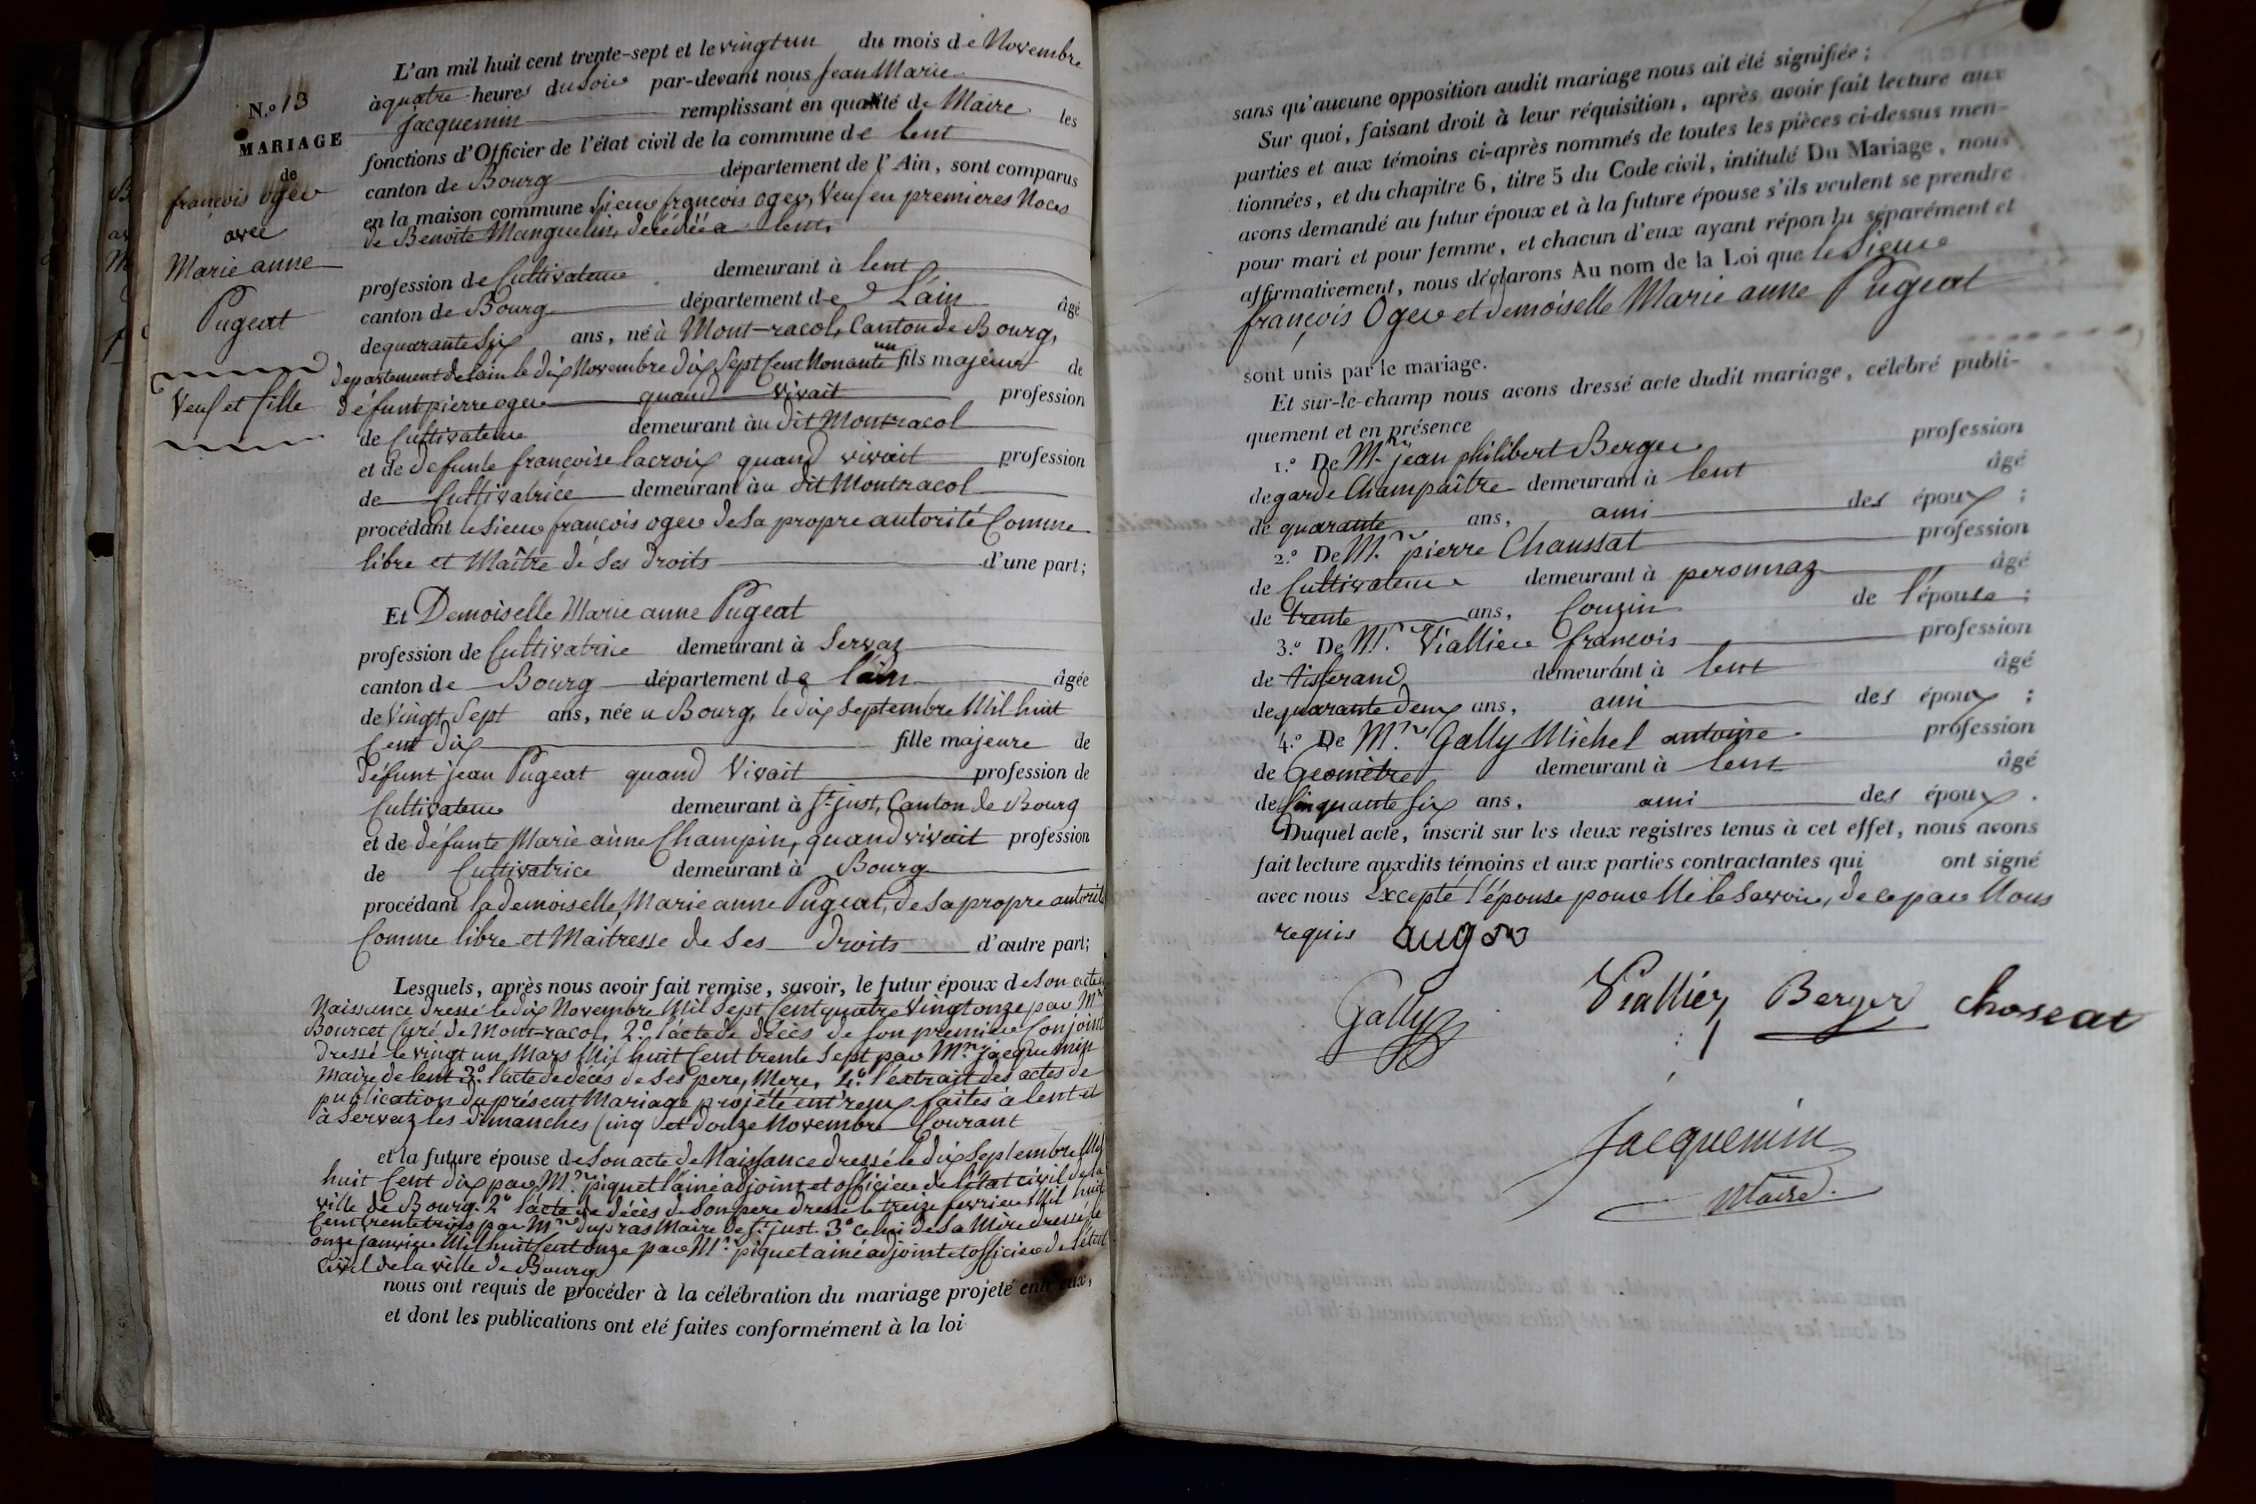 N.o 13
MARIAGE
de
françois oger
avec
Marie anne
Pugeat
Veuf et fille
L'an mil huit cent trente-sept et le vingt un du mois de Novembre
à quatre heures du soir par-devant nous Jean Marie
Jacquemin remplissant en qualité de Maire les
fonctions d'Officier de l'état civil de la commune de lent
canton de Bourg département de l'Ain, sont comparus
en la maison commune Sieur françois oger, Veuf en premieres Noces
de Benoite Manguelin, décédée a lent,
profession de Cultivateur demeurant à lent
canton de Bourg département de L'ain âgé
de quarante Six ans, né à Mont-racol, Canton de Bourg,
departement de lain le dix Novembre dix Sept Cent Nonante un fils majeur de
défunt pierre oger quand vivait profession
de Cultivateur demeurant àu dit Montracol
et de defunte françoise lacroix quand vivait profession
de Cultivatrice demeurant àu dit Montracol
procédant le sieur françois oger de sa propre autorité Comme
libre et Maître de Ses droits d'une part;
Et Demoiselle Marie anne Pugeat
profession de Cultivatrice demeurant à Servaz
canton de Bourg département de lain âgée
de Vingt Sept ans, née a Bourg, le dix Septembre Mil huit
Cent dix fille majeure de
défunt jean Pugeat quand Vivait profession de
Cultivateur demeurant à St just, Canton de Bourg
et de défunte Marie ànne Champin, quand vivait profession
de Cultivatrice demeurant à Bourg
procédant la demoiselle, Marie anne Pugeat, de sa propre autorité
Comme libre et Maitresse de Ses droits d'autre part;
Lesquels, après nous avoir fait remise, savoir, le futur époux de Son acte de
Naissance dressé le dix Novembre Mil Sept Cent quatre Vingt onze par Mr
Bourcet Curé de Mont-racol, 2.o l'acte de décès de Son premier Conjoint
dressé le vingt un Mars Mil huit Cent trente Sept par Mr. jacquemin
Maire de lent 3.o l'acte de décès de Ses pere, Mere, 4.o l'extrait des actes de
publication du présent Mariage projeté entr'eux faites à lent et
à Servaz les dimanches Cinq et douze Novembre Courant
et la future épouse de Son acte de Naissance dressé le dix Septembre Mil
huit Cent dix par Mr. piquet l'ainé adjoint et officier de l'état civil de la
ville de Bourg. 2o l'acte de décès de Son pere dressé le treize fevrier Mil huit
Cent trente trois par Mr dupras Maire de St. just. 3o Celui de Sa Mère dressé le
onze janvier Mil huit Cent onze par Mr. piquet ainé adjoint et officier de l'état
civil de la ville de Bourg
nous ont requis de procéder à la célébration du mariage projeté entr'eux,
et dont les publications ont été faites conformément à la loi
sans qu'aucune opposition audit mariage nous ait été signifiée;
Sur quoi, faisant droit à leur réquisition, après avoir fait lecture aux
parties et aux témoins ci-après nommés de toutes les pièces ci-dessus men-
tionnées, et du chapitre 6, titre 5 du Code civil, intitulé Du Mariage, nous
avons demandé au futur époux et à la future épouse s'ils veulent se prendre
pour mari et pour femme, et chacun d'eux ayant répondu séparément et
affirmativement, nous déclarons Au nom de la Loi que le Sieur
françois Oger et demoiselle Marie anne Pugeat
sont unis par le mariage.
Et sur-le-champ nous avons dressé acte dudit mariage, célébré publi-
quement et en présence
1.o De Mr. jean philibert Berger profession
de garde Champaître demeurant à lent âgé
de quarante ans, ami des époux;
2.o De Mr. pierre Chaussat profession
de Cultivateur demeurant à peronnaz âgé
de trente ans, Couzin de l'épouse;
3.o De Mr. Viallier françois profession
de tisserand demeurant à lent âgé
de quarante deux ans, ami des époux;
4.o De Mr. Gally Michel antoine profession
de Geomètre demeurant à lent âgé
de Cinquante Six ans, ami des époux.
Duquel acte, inscrit sur les deux registres tenus à cet effet, nous avons
fait lecture auxdits témoins et aux parties contractantes qui ont signé
avec nous Excepté l'épouse pour Ne le Savoir, de ce par Nous
requis auger
Gally Viallier Berger choseat
Jacquemin
Maire.